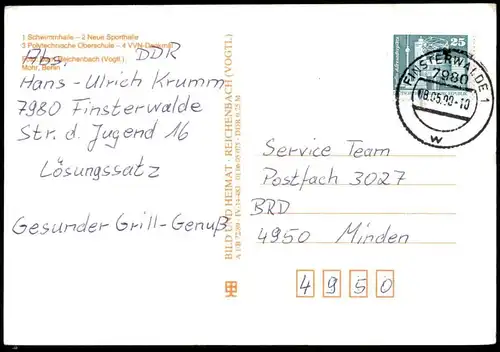 1 Schwimmhalle – 2 Neue Sporthalle
3 Polytechnische Oberschule – 4 VVN-Denkmal
Reichenbach (Vogtl.)
Mohr, Berlin
Abs. DDR
Hans-Ulrich Krumm
7980 Finsterwalde
Str. d. Jugend 16
Lösungssatz
Gesunder Grill-Genuß
BILD UND HEIMAT · REICHENBACH (VOGTL)
25
FINSTERWALDE 1
7980
08.05.90-10
w
Service Team
Postfach 3027
BRD
4950 Minden
4 9 5 0